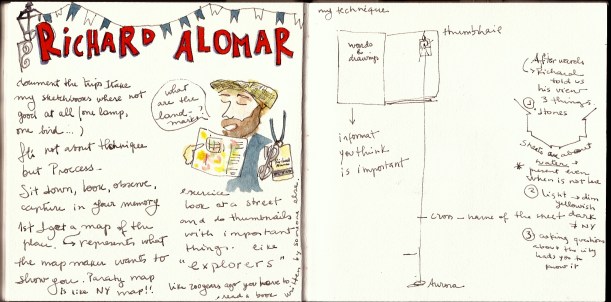 RICHARD ALOMAR
document the trips I take
my sketchbooks where not
good at all (one lamp,
one bird...)
It's not about technique
but Proccess-
Sit down, look, observe,
capture in your memory
1st I get a map of the
place. represents what
the map maker wants to
show you. Paraty map
is like NY map!!
what
are the
land-
marks?
exercise
look at a street
and do thumbnails
with important
things. like
"explorers"
like 200 years ago you have to
read a book
written by someone else.
my technique
thumbnail
words
&
drawings
informat
you think
is important
cron - name of the street
Aurora
After words
Richard
told us
his view
3 things
① stones
streets are about
water
present even
when is not here
② light → dim
yellowish
dark
≠ NY
③ asking questions
about the city
leads you to
know it